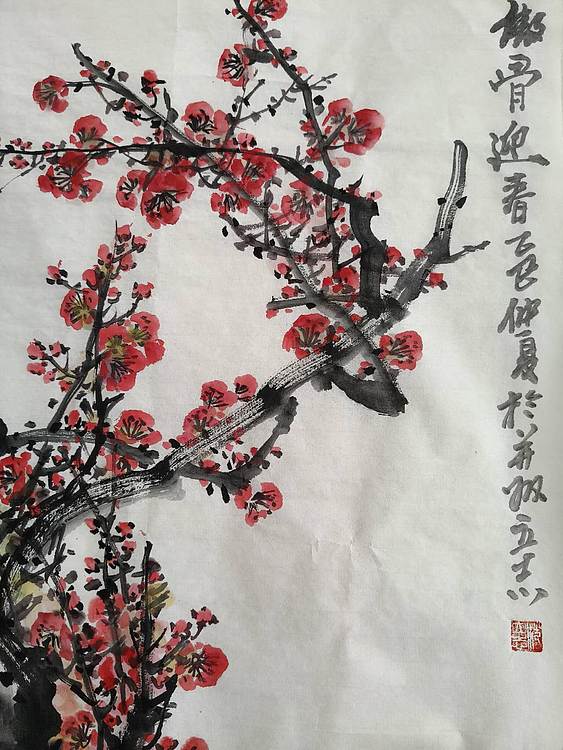 傲骨迎春乙巳仲夏於并州立志